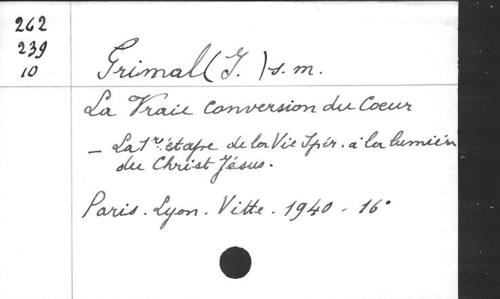 262
239
10
Grimal (J.) s. m.
La Vraie conversion du Coeur
- La 1re étape de la Vie Spir. à la lumièr
du Christ Jésus.
Paris. Lyon. Vitte. 1940 - 16°